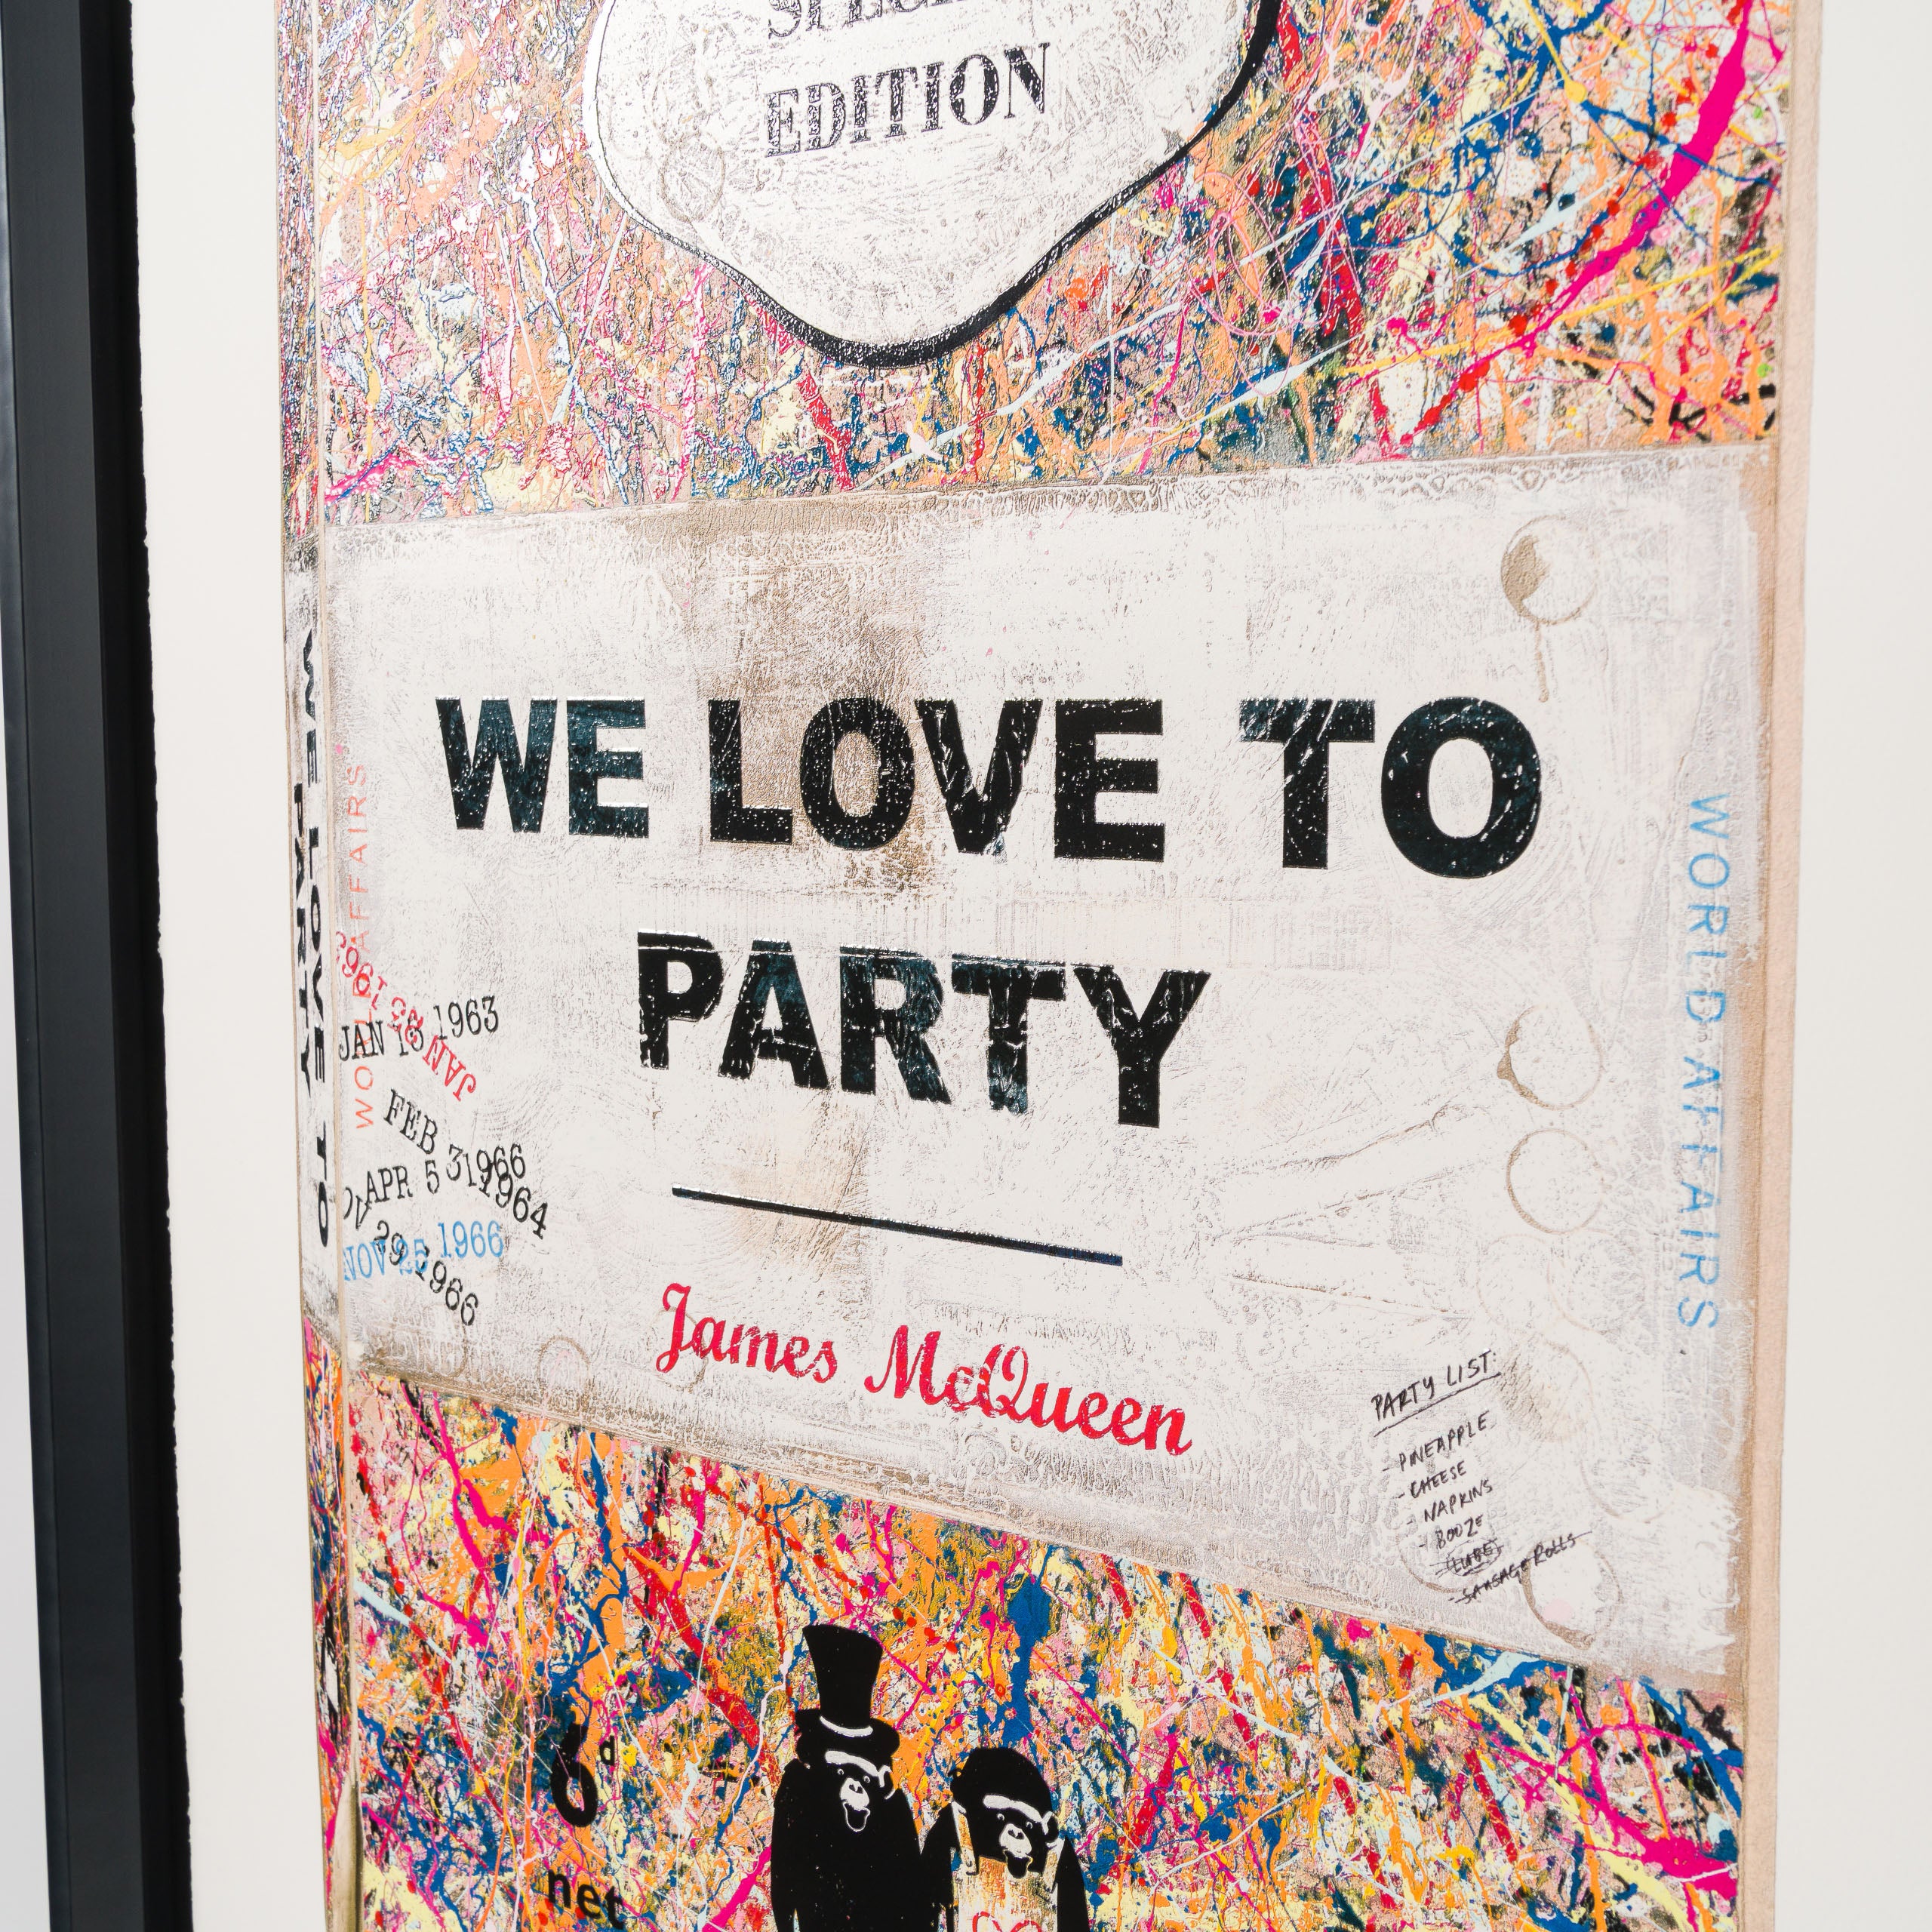 EDITION
WE LOVE TO
PARTY
WE LOVE TO
PARTY
WORLD AFFAIRS
WORLD AFFAIRS
JAN 18 1963
JAN
FEB 3 1966
APR 5 1964
NOV 25 1966
29 1966
James McQueen
PARTY LIST:
- PINEAPPLE
- CHEESE
- NAPKINS
- BOOZE
- LUBE
- SAUSAGE ROLLS
6d
net